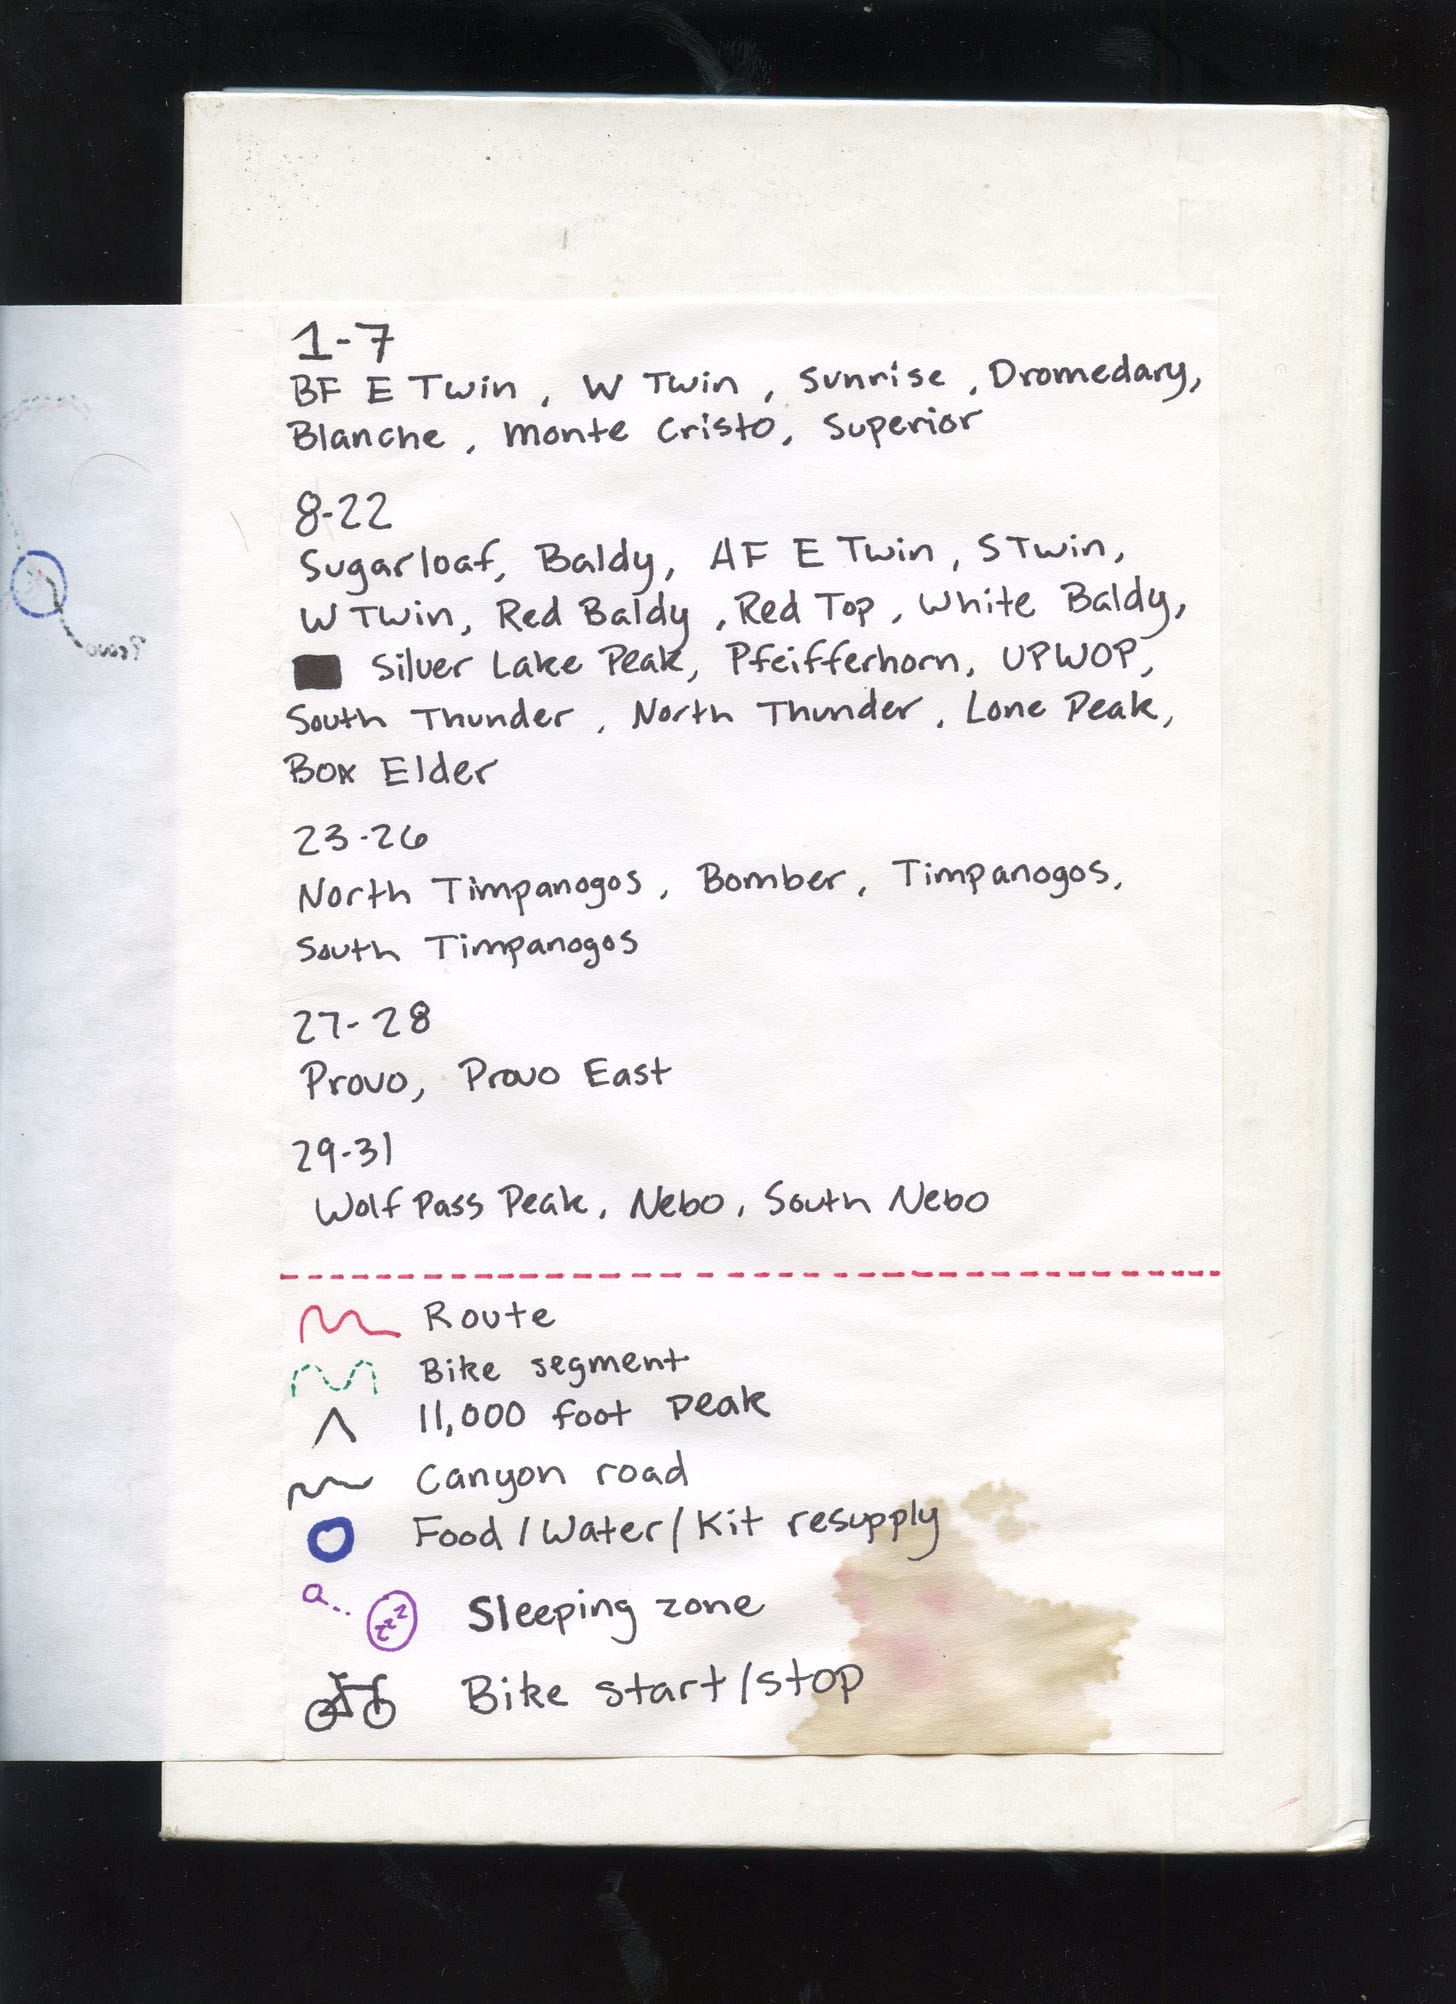 1-7
BF E Twin, W Twin, Sunrise, Dromedary,
Blanche, Monte Cristo, Superior
8-22
Sugarloaf, Baldy, AF E Twin, S Twin,
W Twin, Red Baldy, Red Top, White Baldy,
Silver Lake Peak, Pfeifferhorn, UPWOP,
South Thunder, North Thunder, Lone Peak,
Box Elder
23-26
North Timpanogos, Bomber, Timpanogos,
South Timpanogos
27-28
Provo, Provo East
29-31
Wolf Pass Peak, Nebo, South Nebo
Route
Bike segment
11,000 foot peak
Canyon road
Food/Water/Kit resupply
zzz Sleeping zone
Bike start/stop
Provo